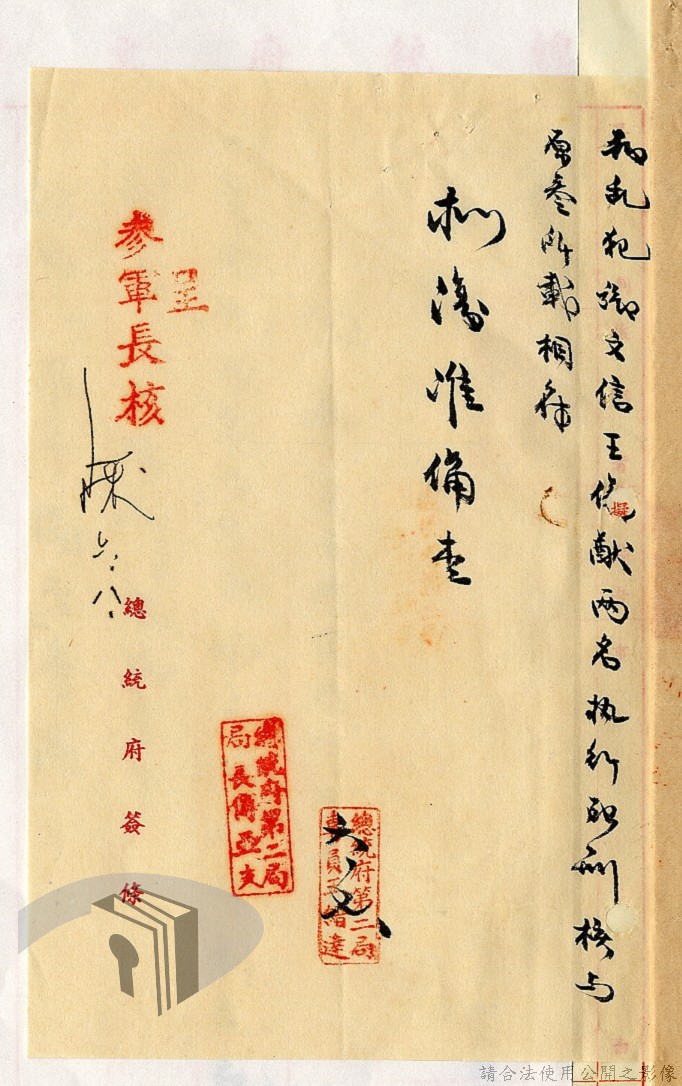 叛乱犯文信王献两名执行死刑核与
擬
原所載相符
拟復准備查
總統府第二局
專員達
總統府第二局
局長傅亞夫
呈
參軍長核
六.八.
總統府簽條
請合法使用公開之影像